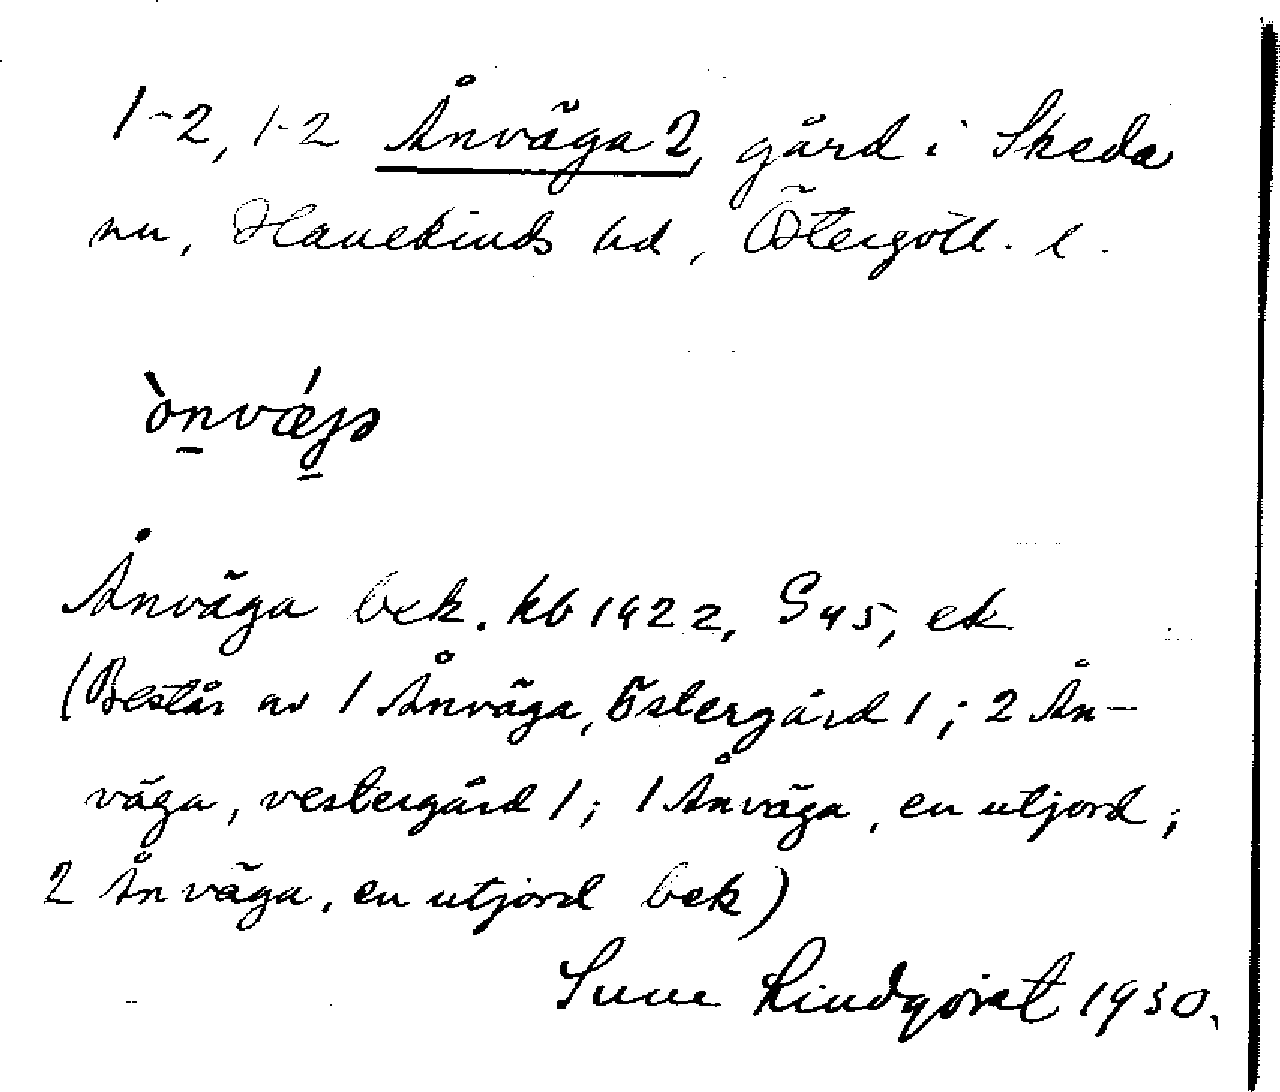 1-2, 1-2 Ånväga 2, gård i Skeda
sn, Hanekinds hd, Östergötl. l.
ònvǽgə
Ånväga bek. kb 1922, S 45, ek
(Består av 1 Ånväga, östergård 1; 2 Ån-
väga, vestergård 1; 1 Ånväga, en utjord;
2 Ånväga, en utjord bek)
Sune Lindqvist 1930.